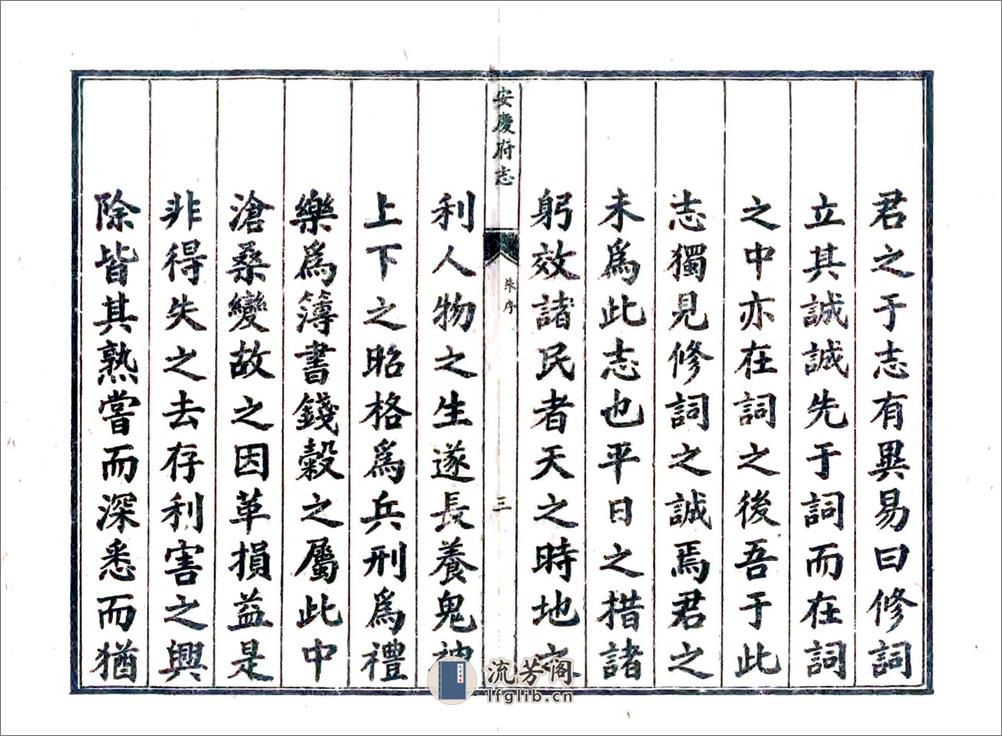 君之于志有異易曰修詞
立其誠誠先于詞而在詞
之中亦在詞之後吾于此
志獨見修詞之誠焉君之
未為此志也平日之措諸
躬效諸民者天之時地之
安慶府志
朱序
三
利人物之生遂長養鬼神
上下之昭格爲兵刑爲禮
樂爲簿書錢穀之屬此中
滄桑變故之因革損益是
非得失之去存利害之興
除皆其熟嘗而深悉而猶
流芳阁
lfglib.cn